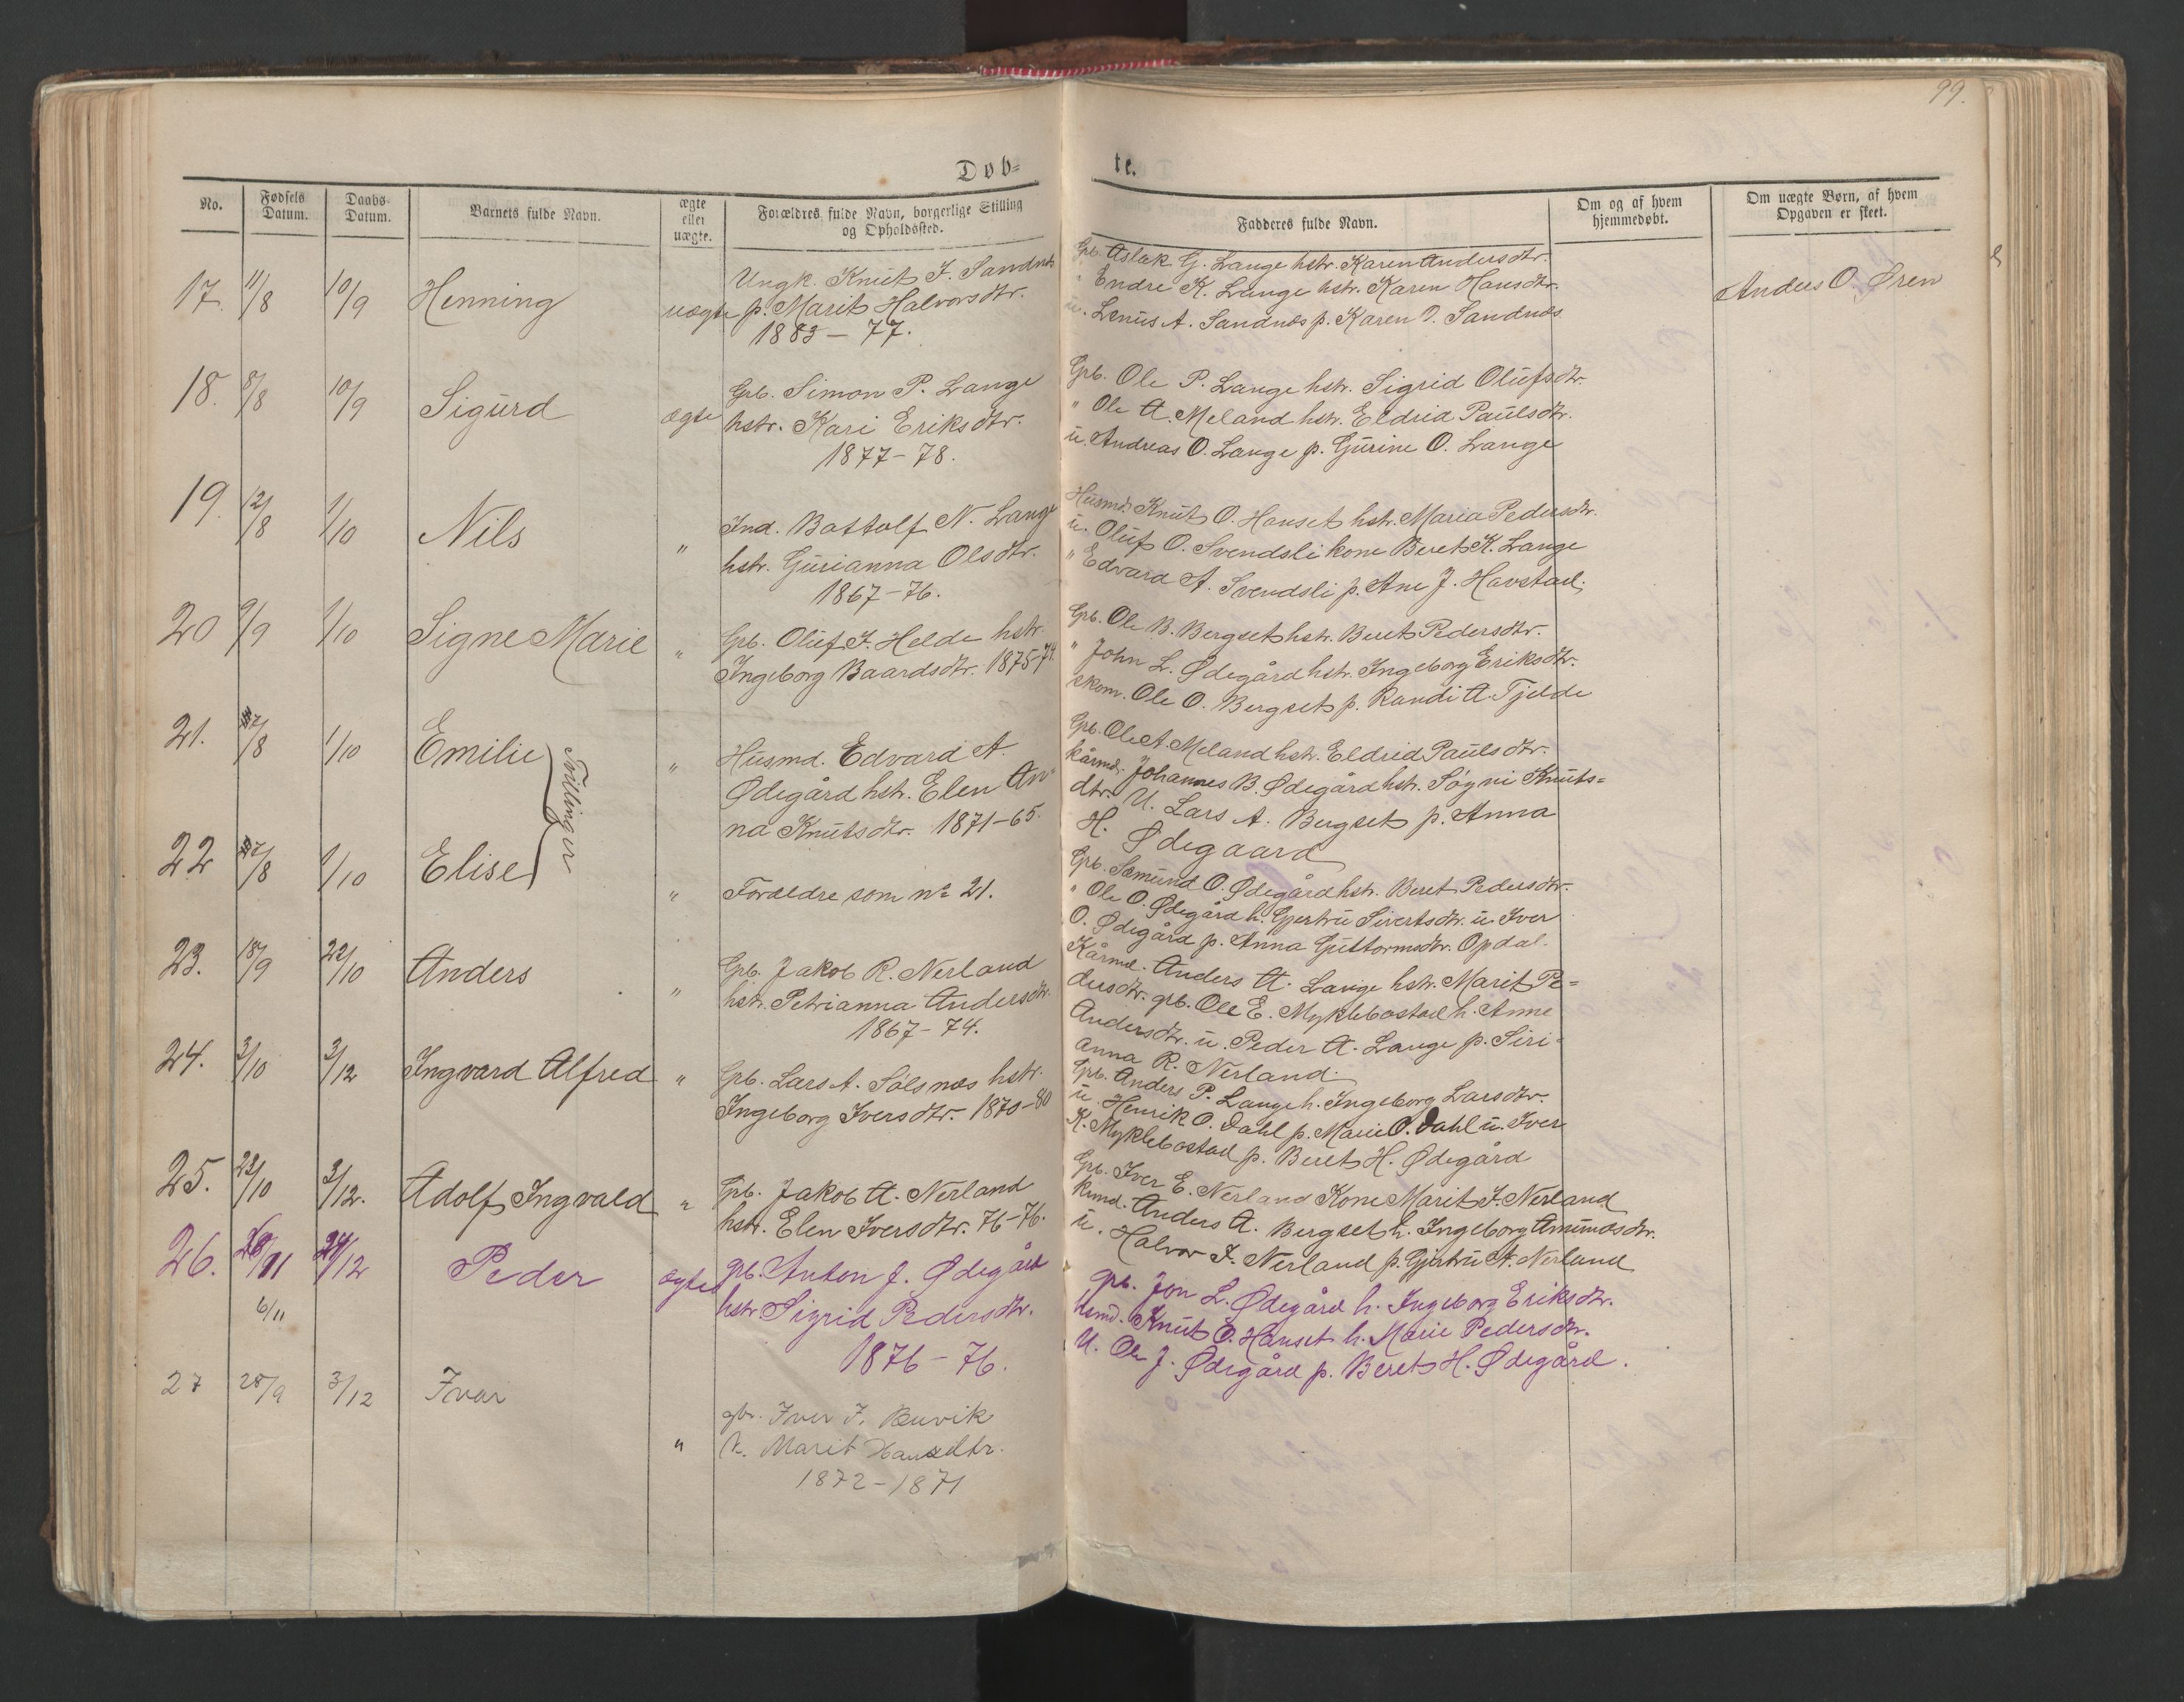 99.
Døb=
te.
No.
Fødsels Datum.
Daabs- Datum.
Barnets fulde Navn.
ægte eller uægte.
Forældres fulde Navn, borgerlige Stilling og Opholdssted.
Fadderes fulde Navn.
Om og af hvem hjemmedøbt.
Om uægte Børn, af hvem Opgaven er skeet.
17. 11/8 10/9 Henning uægte
Ungk. Knut J. Sandnes
p. Marit Halvorsdtr.
1883 - 77.
Grb. Aslak G. Lange hstr. Karen Andersdtr.
" Endre K. Lange hstr. Karen Hansdtr.
u. Lenus A. Sandnes p. Karen O. Sandnes
Anders O. Øren
18. 8/8 10/9 Sigurd ægte
Grb. Simon P. Lange
hstr. Kari Eriksdtr.
1877 - 78.
Grb. Ole P. Lange hstr. Sigrid Olufsdtr.
" Ole A. Meland hstr. Eldrid Paulsdtr.
u. Andreas O. Lange p. Gurine O. Lange
19. 12/8 1/10 Nils "
Ind. Bottolf N. Lange
hstr. Gurianna Olsdtr.
1867 - 76.
Husmd. Knut O. Hanset hstr. Maria Pedersdtr.
u. Oluf O. Svendsli kone Beret K. Lange
" Edvard A. Svendsli p. Ane J. Havstad.
20 9/9 1/10 Signe Marie "
Grb. Oluf J. Helde hstr.
Ingeborg Baardsdtr. 1875-74.
Grb. Ole B. Bergset hstr. Beret Pedersdtr.
" John L. Ødegård hstr. Ingeborg Eriksdtr.
skom. Ole O. Bergset p. Randi A. Tjelde
21. /8 1/10 Emilie "
Tvillinger
Husmd. Edvard A.
Ødegård hstr. Elen An-
na Knutsdtr. 1871-65.
Grb. Ole A. Meland hstr. Eldrid Paulsdtr.
kårmd. Johannes B. Ødegård hstr. Søgni Knuts=
dtr. U. Lars A. Bergset p. Anna
H. Ødegaard
22 /8 1/10 Elise "
Forældre som no 21.
Grb. Sæmund O. Ødegård hstr. Beret Pedersdtr.
" Ole O. Ødegård h. Gjertru Sivertsdtr. u. Iver
O. Ødegård p. Anna Guttormsdtr. Opdal.
23. 18/9 22/10 Anders "
Grb. Jakob R. Nerland
hstr. Petrianna Andersdtr.
1867 - 74.
Kårmd. Anders A. Lange hstr. Marit Pe=
dersdtr. grb. Ole E. Myklebostad h. Anne
Andersdtr. u. Peder A. Lange p. Siri=
anna R. Nerland.
24. 3/10 3/12 Ingvard Alfred "
Grb. Lars A. Sølsnæs hstr.
Ingeborg Iversdtr. 1870-80
Grb. Anders P. Lange h. Ingeborg Larsdtr.
u. Henrik O. Dahl p. Marie O. Dahl u. Iver
K. Myklebostad p. Beret H. Ødegård
25. 23/10 3/12. Adolf Ingvald "
Grb. Jakob A. Nerland
hstr. Elen Iversdtr. 76-76.
Grb. Iver E. Nerland Kone Marit J. Nerland
krmd. Anders A. Bergset h. Ingeborg Amundsdtr.
u. Halvor J. Nerland p. Gjertru A. Nerland
26. /11 24/12 Peder ægte
6/11
grb. Anton J. Ødegård
hstr. Sigrid Pedersdtr.
1876 - 76.
grb. Jon L. Ødegård h. Ingeborg Eriksdtr.
husmd. Knut O. Hanset h. Marie Pedersdtr.
U. Ole J. Ødegård p. Beret H. Ødegård.
27 28/9 3/12 Ivar "
gbr. Iver J. Buvik
h. Marit Hansdtr.
1872 - 1871